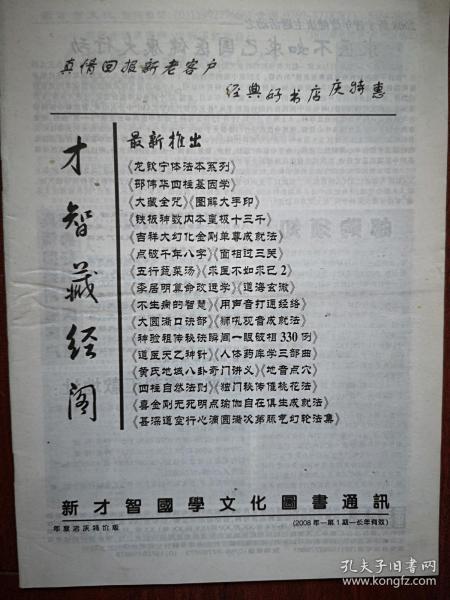 真情回报新老客户
经典好书店庆特惠
才智藏经阁
最新推出
《龙钦宁体法本系列》
《邵伟华四柱基因学》
《大藏全咒》《图解大手印》
《铁板神数内本皇极十三千》
《吉祥大幻化金刚单尊成就法》
《点破千年八字》《面相过三关》
《五行蔬菜汤》《求医不如求己2》
《李居明算命改运学》《道海玄微》
《不生病的智慧》《用声音打通经络》
《大圆满口诀部》《狮吼观音成就法》
《神验祖传秘诀瞬间一眼破相330例》
《道医天乙神针》《人体药库学三部曲》
《黄氏地域八卦奇门讲义》《地音点穴》
《四柱自然法则》《独门秘传催桃花法》
《喜金刚无死明点瑜伽自在俱生成就法》
《甚深道空行心滴圆满次第脉气幻轮法集》
新才智國學文化圖書通訊
年章店庆特价版
(2008年—第1期—长年有效)
孔夫子旧书网
book.kongfz.com